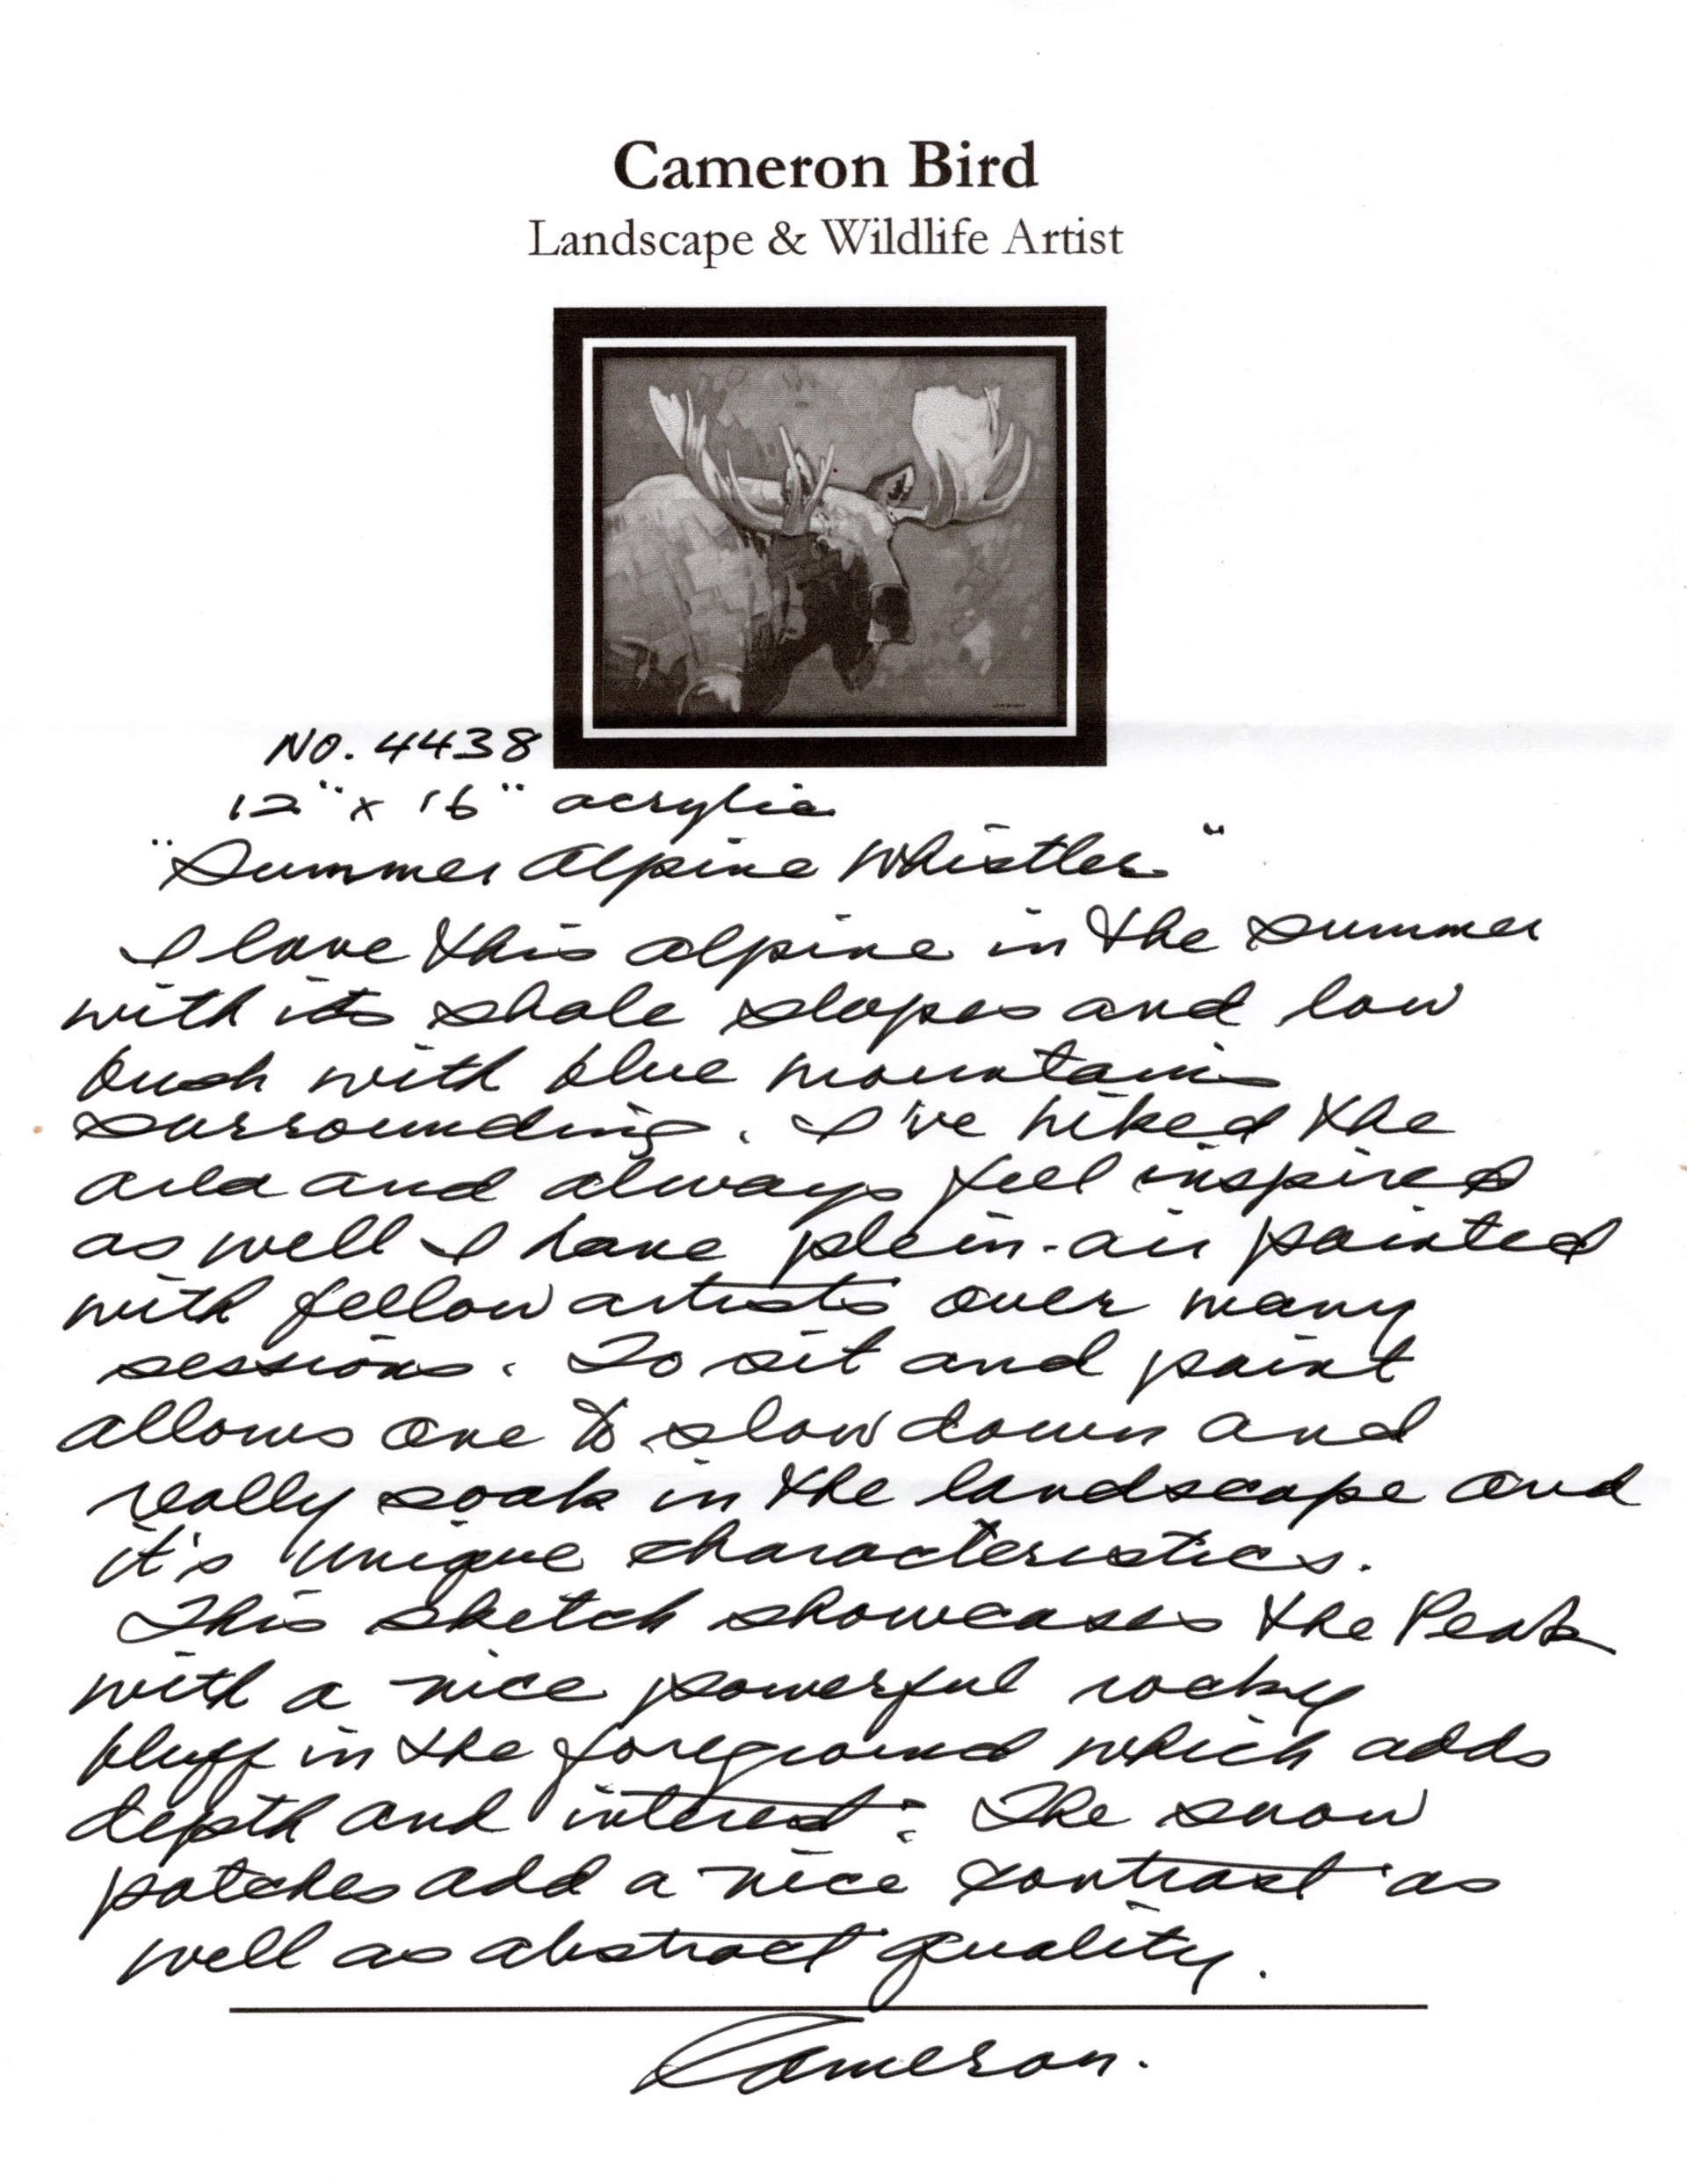 Cameron Bird
Landscape & Wildlife Artist
NO. 4438
12" x 16" acrylic
"Summer Alpine Whistler"
I love this alpine in the summer
with its shale slopes and low
bush with blue mountains
surrounding. I've hiked the
area and always feel inspired
as well I have plein-air painted
with fellow artists over many
sessions. To sit and paint
allows one to slow down and
really soak in the landscape and
it's unique characteristics.
This sketch showcases the Peak
with a nice powerful rocky
bluff in the foreground which adds
depth and interest. The snow
patches add a nice contrast as
well as abstract quality.
Cameron.